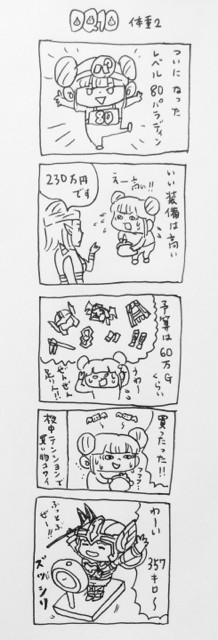 DQ10 体重2
ついになった
レベル80パラディン
80
いい装備は高い
えー高い!!
230万円
です
予算は60万G
くらい
うわー
ぜんぜん
足りん!!
買ったった!!
夜中テンションで
買い物コワイ
わーい
357
キロ〜
ふっとぶ
ぜー!!
ズッシリ